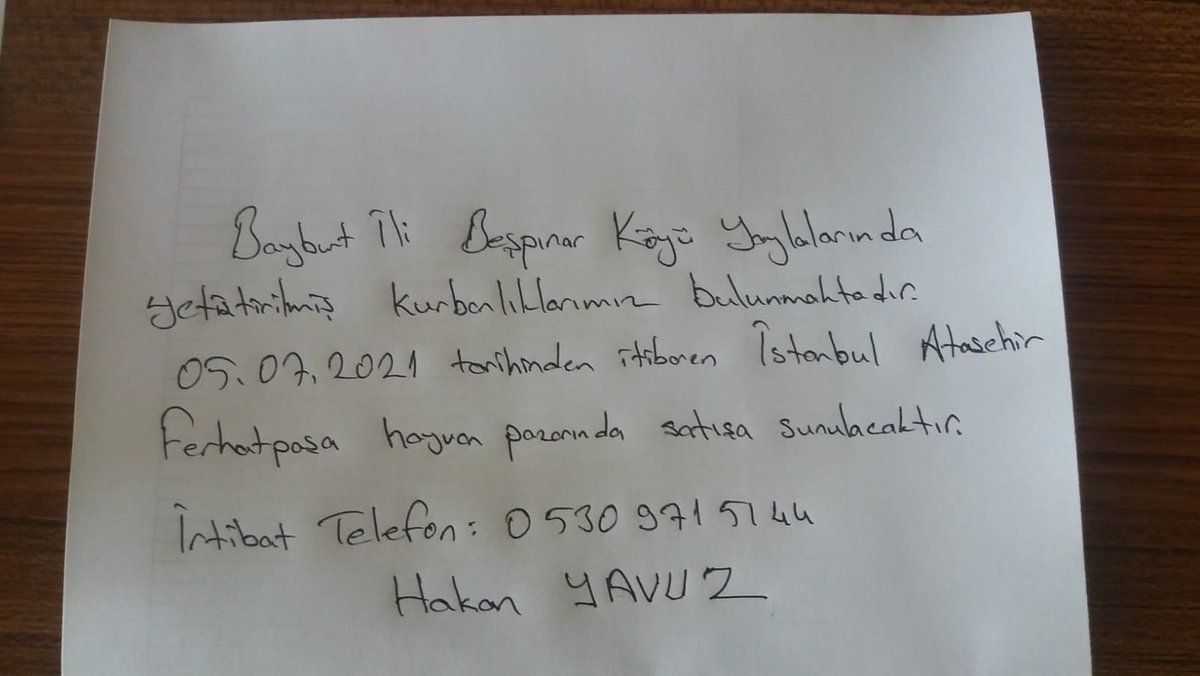 Bayburt İli Beşpınar Köyü Yaylalarında
yetiştirilmiş kurbanlıklarımız bulunmaktadır.
05.07.2021 tarihinden itibaren İstanbul Atasehir
Ferhatpaşa hayvan pazarında satışa sunulacaktır.
İrtibat Telefon: 0530 971 5144
Hakan YAVUZ